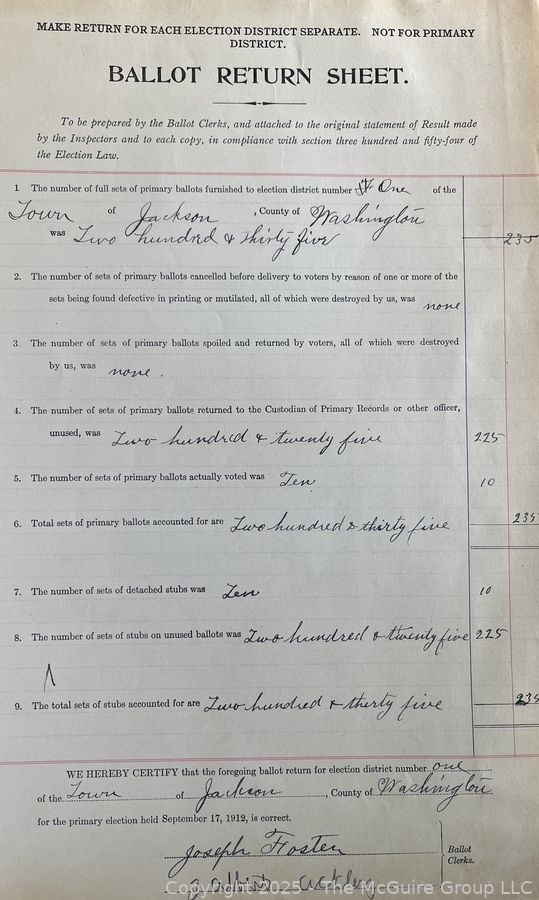 MAKE RETURN FOR EACH ELECTION DISTRICT SEPARATE. NOT FOR PRIMARY
DISTRICT.
BALLOT RETURN SHEET.
To be prepared by the Ballot Clerks, and attached to the original statement of Result made
by the Inspectors and to each copy, in compliance with section three hundred and fifty-four of
the Election Law.
1 The number of full sets of primary ballots furnished to election district number One of the
Town of Jackson, County of Washington
was Two hundred & thirty five 235
2. The number of sets of primary ballots cancelled before delivery to voters by reason of one or more of the
sets being found defective in printing or mutilated, all of which were destroyed by us, was none
3. The number of sets of primary ballots spoiled and returned by voters, all of which were destroyed
by us, was none.
4. The number of sets of primary ballots returned to the Custodian of Primary Records or other officer,
unused, was Two hundred & twenty five 225
5. The number of sets of primary ballots actually voted was Ten 10
6. Total sets of primary ballots accounted for are Two hundred & thirty five 235
7. The number of sets of detached stubs was Ten 10
8. The number of sets of stubs on unused ballots was Two hundred & twenty five 225
9. The total sets of stubs accounted for are Two hundred & thirty five 235
WE HEREBY CERTIFY that the foregoing ballot return for election district number one
of the Town of Jackson, County of Washington
for the primary election held September 17, 1912, is correct.
Joseph Foster
Ballot
Clerks.
Copyright 2025 - The McGuire Group LLC